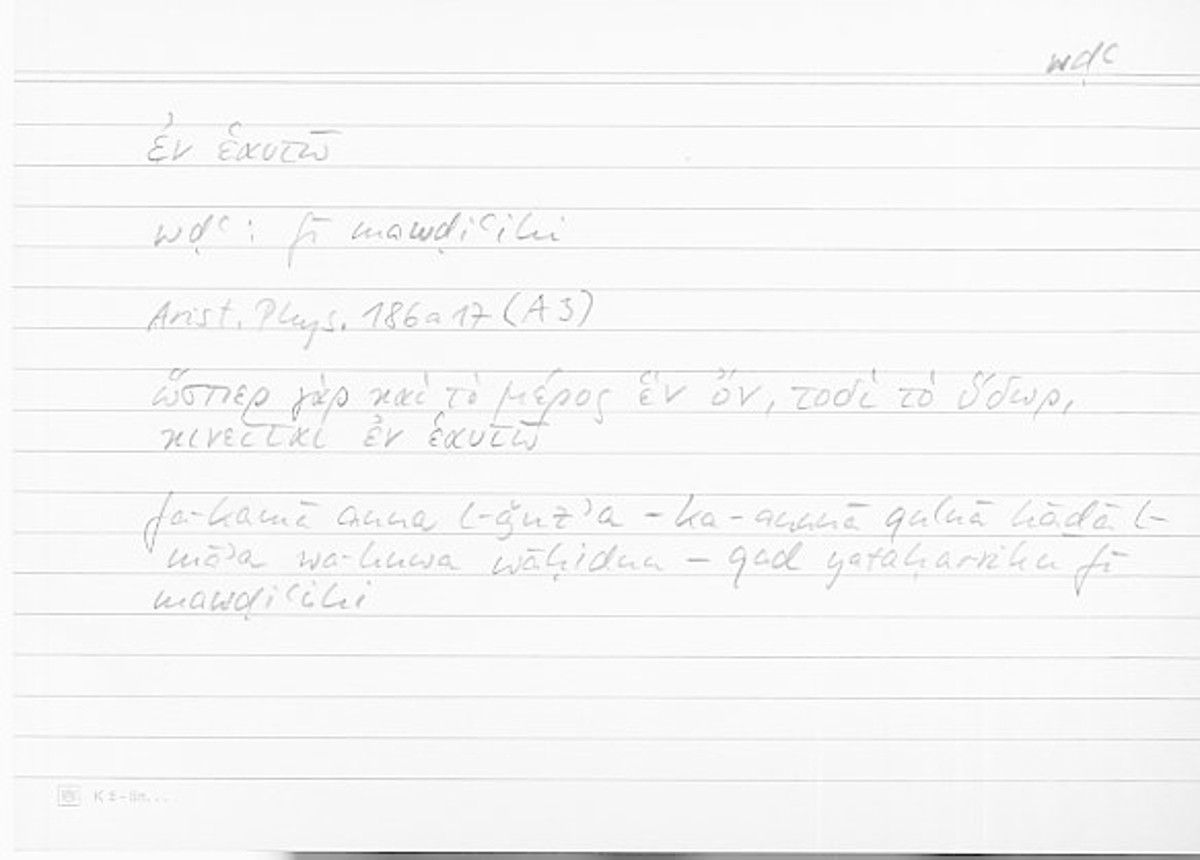 wḍʿ
ἐν ἑαυτῷ
wḍʿ : fī mawḍiʿihi
Arist. Phys. 186a17 (A 3)
ὥσπερ γὰρ καὶ τὸ μέρος ἓν ὄν, τοδὶ τὸ ὕδωρ,
κινεῖται ἐν ἑαυτῷ
fa-kamā anna l-ǧuzʾa - ka-annā qulnā hāḏā l-
māʾa wa-huwa wāḥidun - qad yataḥarriku fī
mawḍiʿihi